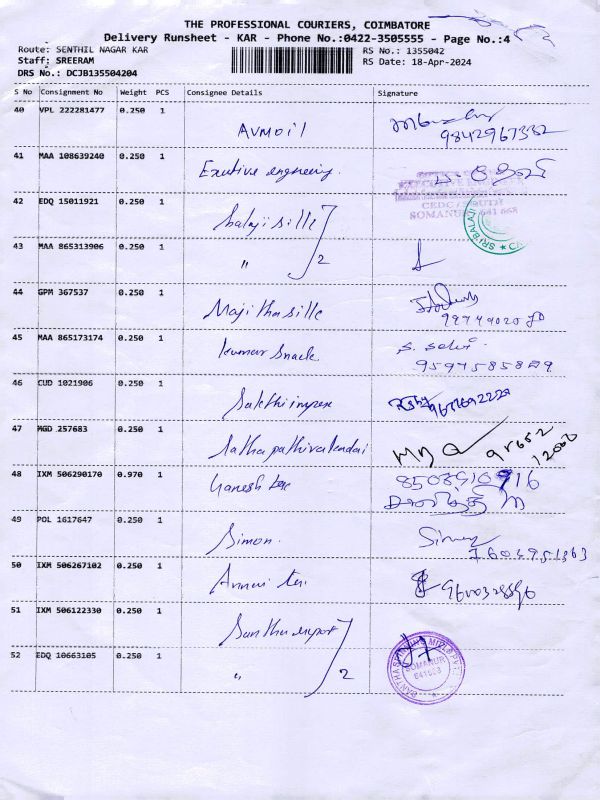 THE PROFESSIONAL COURIERS, COIMBATORE
Delivery Runsheet - KAR - Phone No.:0422-3505555 - Page No.:4
Route: SENTHIL NAGAR KAR
RS No.: 1355042
Staff: SREERAM
RS Date: 18-Apr-2024
DRS No.: DCJB135504204
S No Consignment No Weight PCS Consignee Details Signature
40 VPL 222281477 0.250 1
Avmoil
9842967332
41 MAA 108639240 0.250 1
Exutive engineering.
CEDC / SOUTH
SOMANUR - 641 668
42 EDQ 15011921 0.250 1
balaji sille
SRI BALAJI
43 MAA 865313906 0.250 1
" 2
44 GPM 367537 0.250 1
Majithasille
45 MAA 865173174 0.250 1
kumar snack
S. Selvi
9597585829
46 CUD 1021906 0.250 1
Sakthi impex
47 MGD 257683 0.250 1
48 IXM 506290170 0.970 1
Ganesh tex
8508910716
49 POL 1617647 0.250 1
Simon.
50 IXM 506267102 0.250 1
51 IXM 506122330 0.250 1
52 EDQ 10663105 0.250 1
" 2
SOMANUR
641668